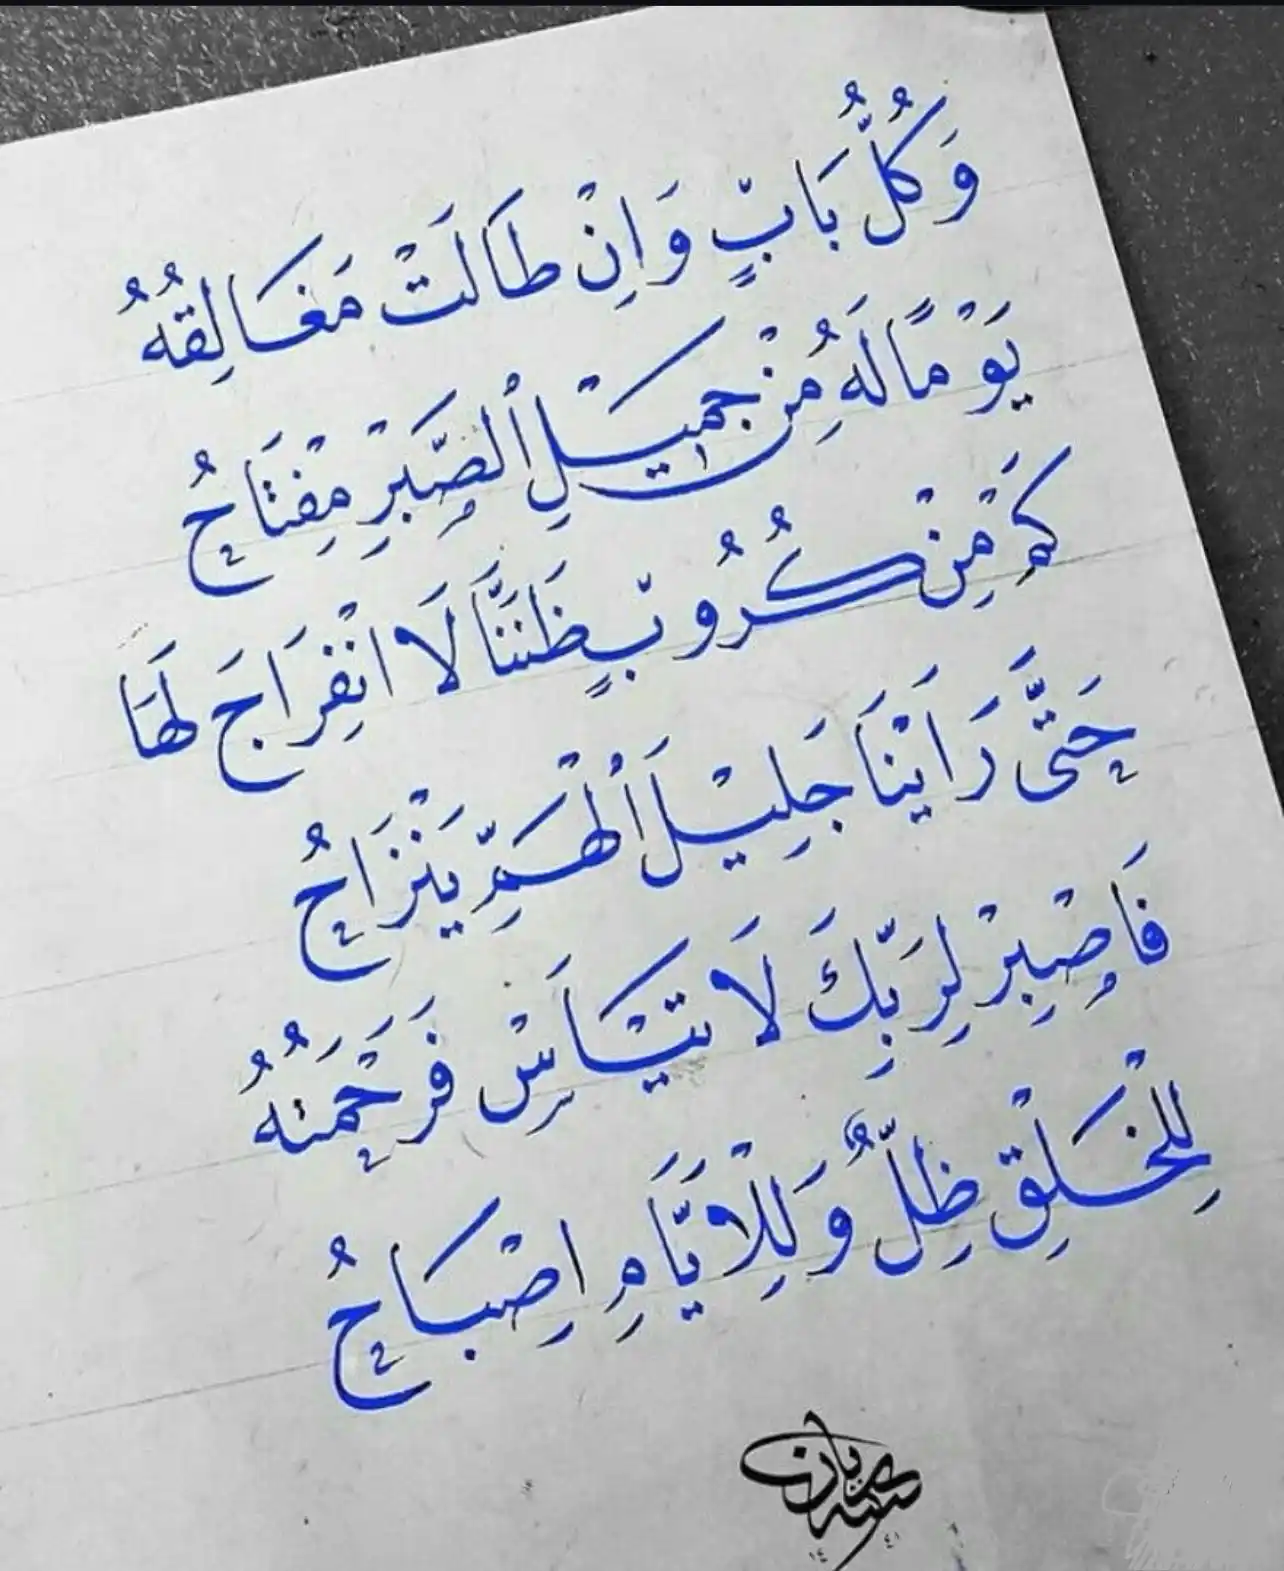 وَكُلُّ بَابٍ وَاِنْ طَالَتْ مَغَالِقُهُ
يَوْمًا لَهُ مِنْ جَمِيْلِ الْصَّبْرِ مِفْتَاحُ
كَمْ مِنْ كُرُوبٍ ظَنَنَّا لَا انْفِرَاجَ لَهَا
حَتَّى رَاَيْنَا جَلِيْلَ الْهَمِّ يَنْزَاحُ
فَاصْبِرْ لِرَبِّكَ لَا تَيْاَسْ فَرَحْمَتُهُ
لِلْخَلْقِ ظِلٌّ وَلِلْاَيَّامِ اِصْبَاحُ